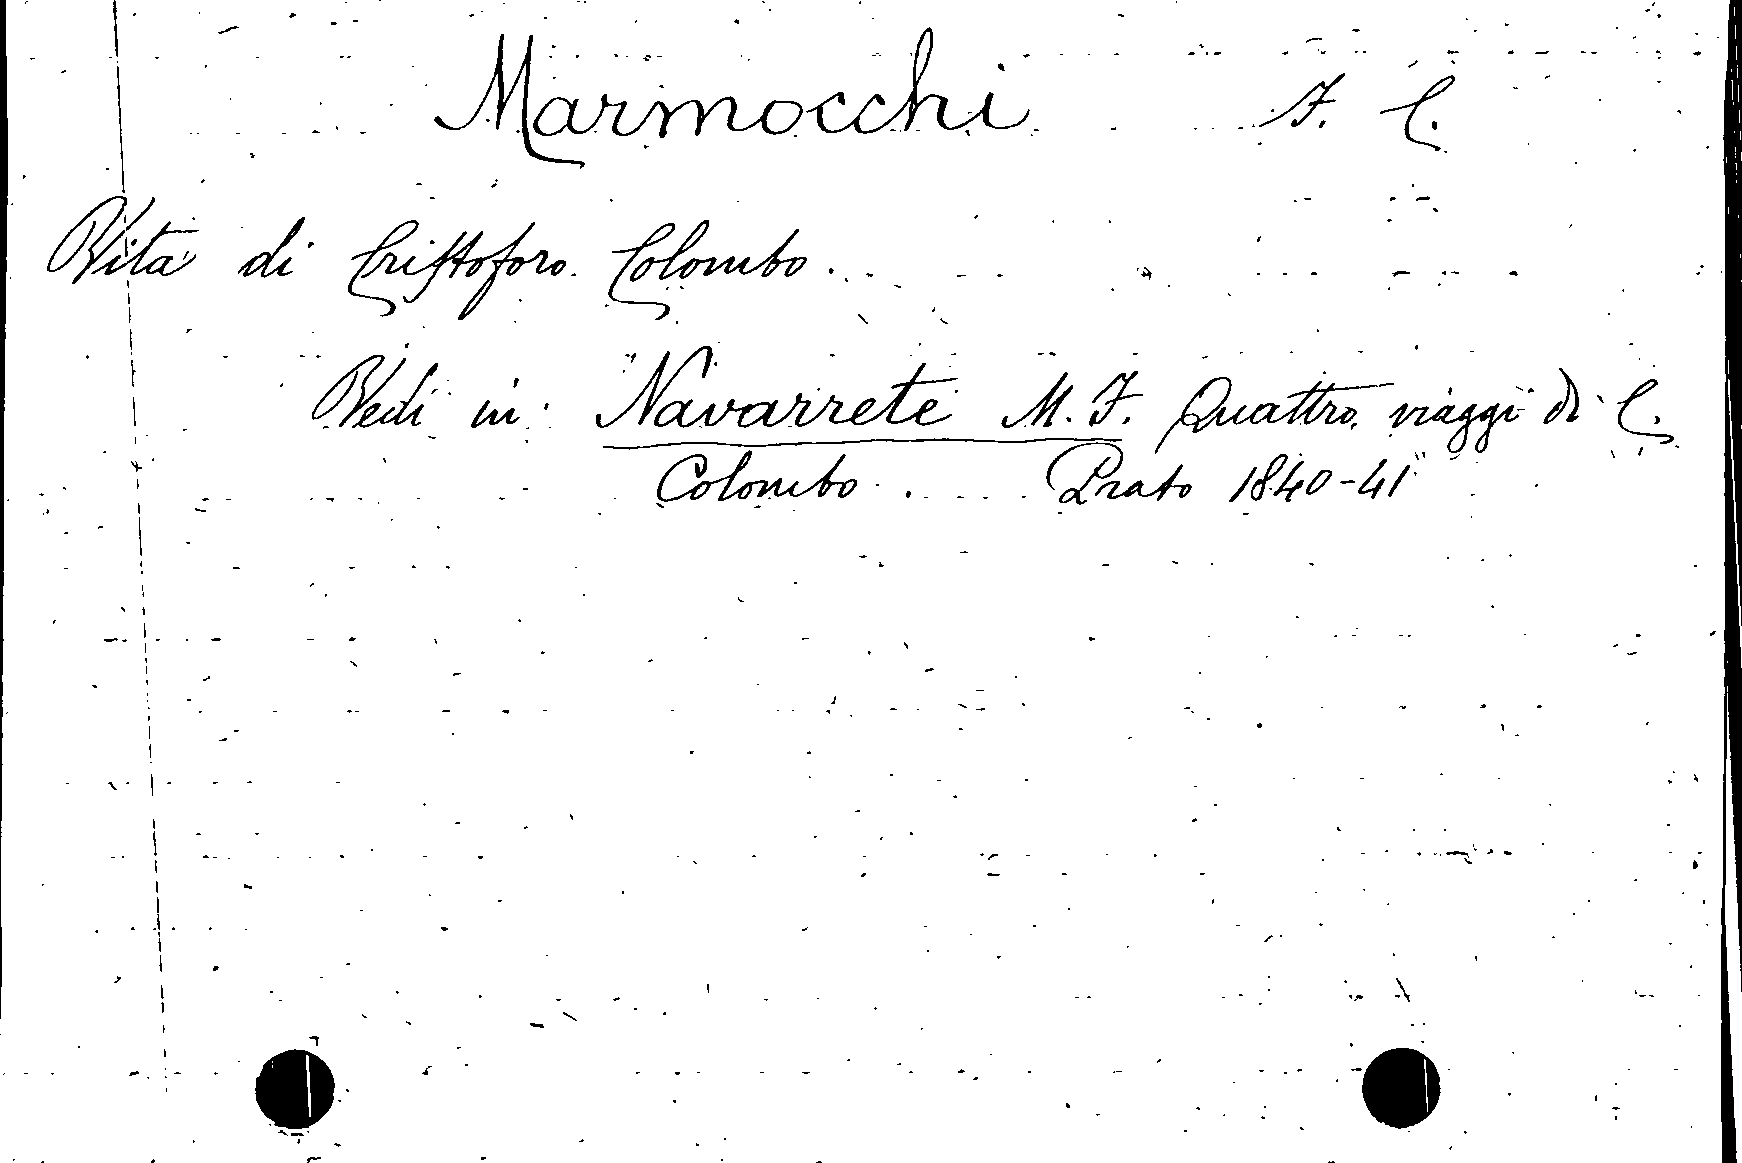 Marmocchi F. C.
Vita di Cristoforo Colombo.
Vedi in: "Navarrete M. F. Quattro viaggi di C.
Colombo. Prato 1840-41"